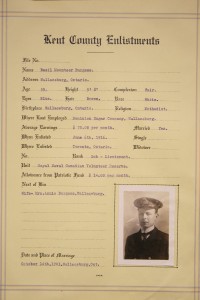 Kent County Enlistments
File No.
Name Basil Schuyler Burgess.
Address Wallaceburg, Ontario.
Age Height Complexion Fair.
Eyes Blue. Hair Brown. Race White.
Birthplace Wallaceburg, Ontario. Religion Methodist.
Where Last Employed Dominion Sugar Company, Wallaceburg.
Average Earnings $ per month. Married Yes.
When Enlisted June 1916. Single
Where Enlisted Toronto, Ontario. Widower
No. Rank Sub - Lieutenant.
Unit Royal Naval Canadian Volunteer Reserve.
Allowance from Patriotic Fund $ per month.
Next of Kin
Wife Mrs. Burgess, Wallaceburg.
Date and Place of Marriage
October Wallaceburg, Ont.